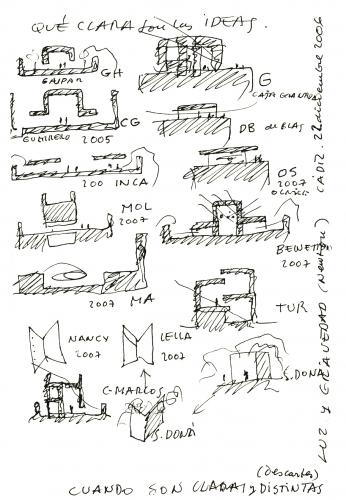 QUÉ CLARA son las IDEAS.
GASPAR GH
G
CAJA GRANADA
GUERRERO 2005 CG
DB de BLAS
200 INCA
OS
2007
MOL
2007
BENETTON
2007
2007 MA
TUR
NANCY
2007
LELLA
2007
C-MARCOS
S. DONÁ
S. DONÁ
(Descartes)
CUANDO SON CLARAS y DISTINTAS
LUZ Y GRAVEDAD (Newton) CÁDIZ. 22 diciembre 2006